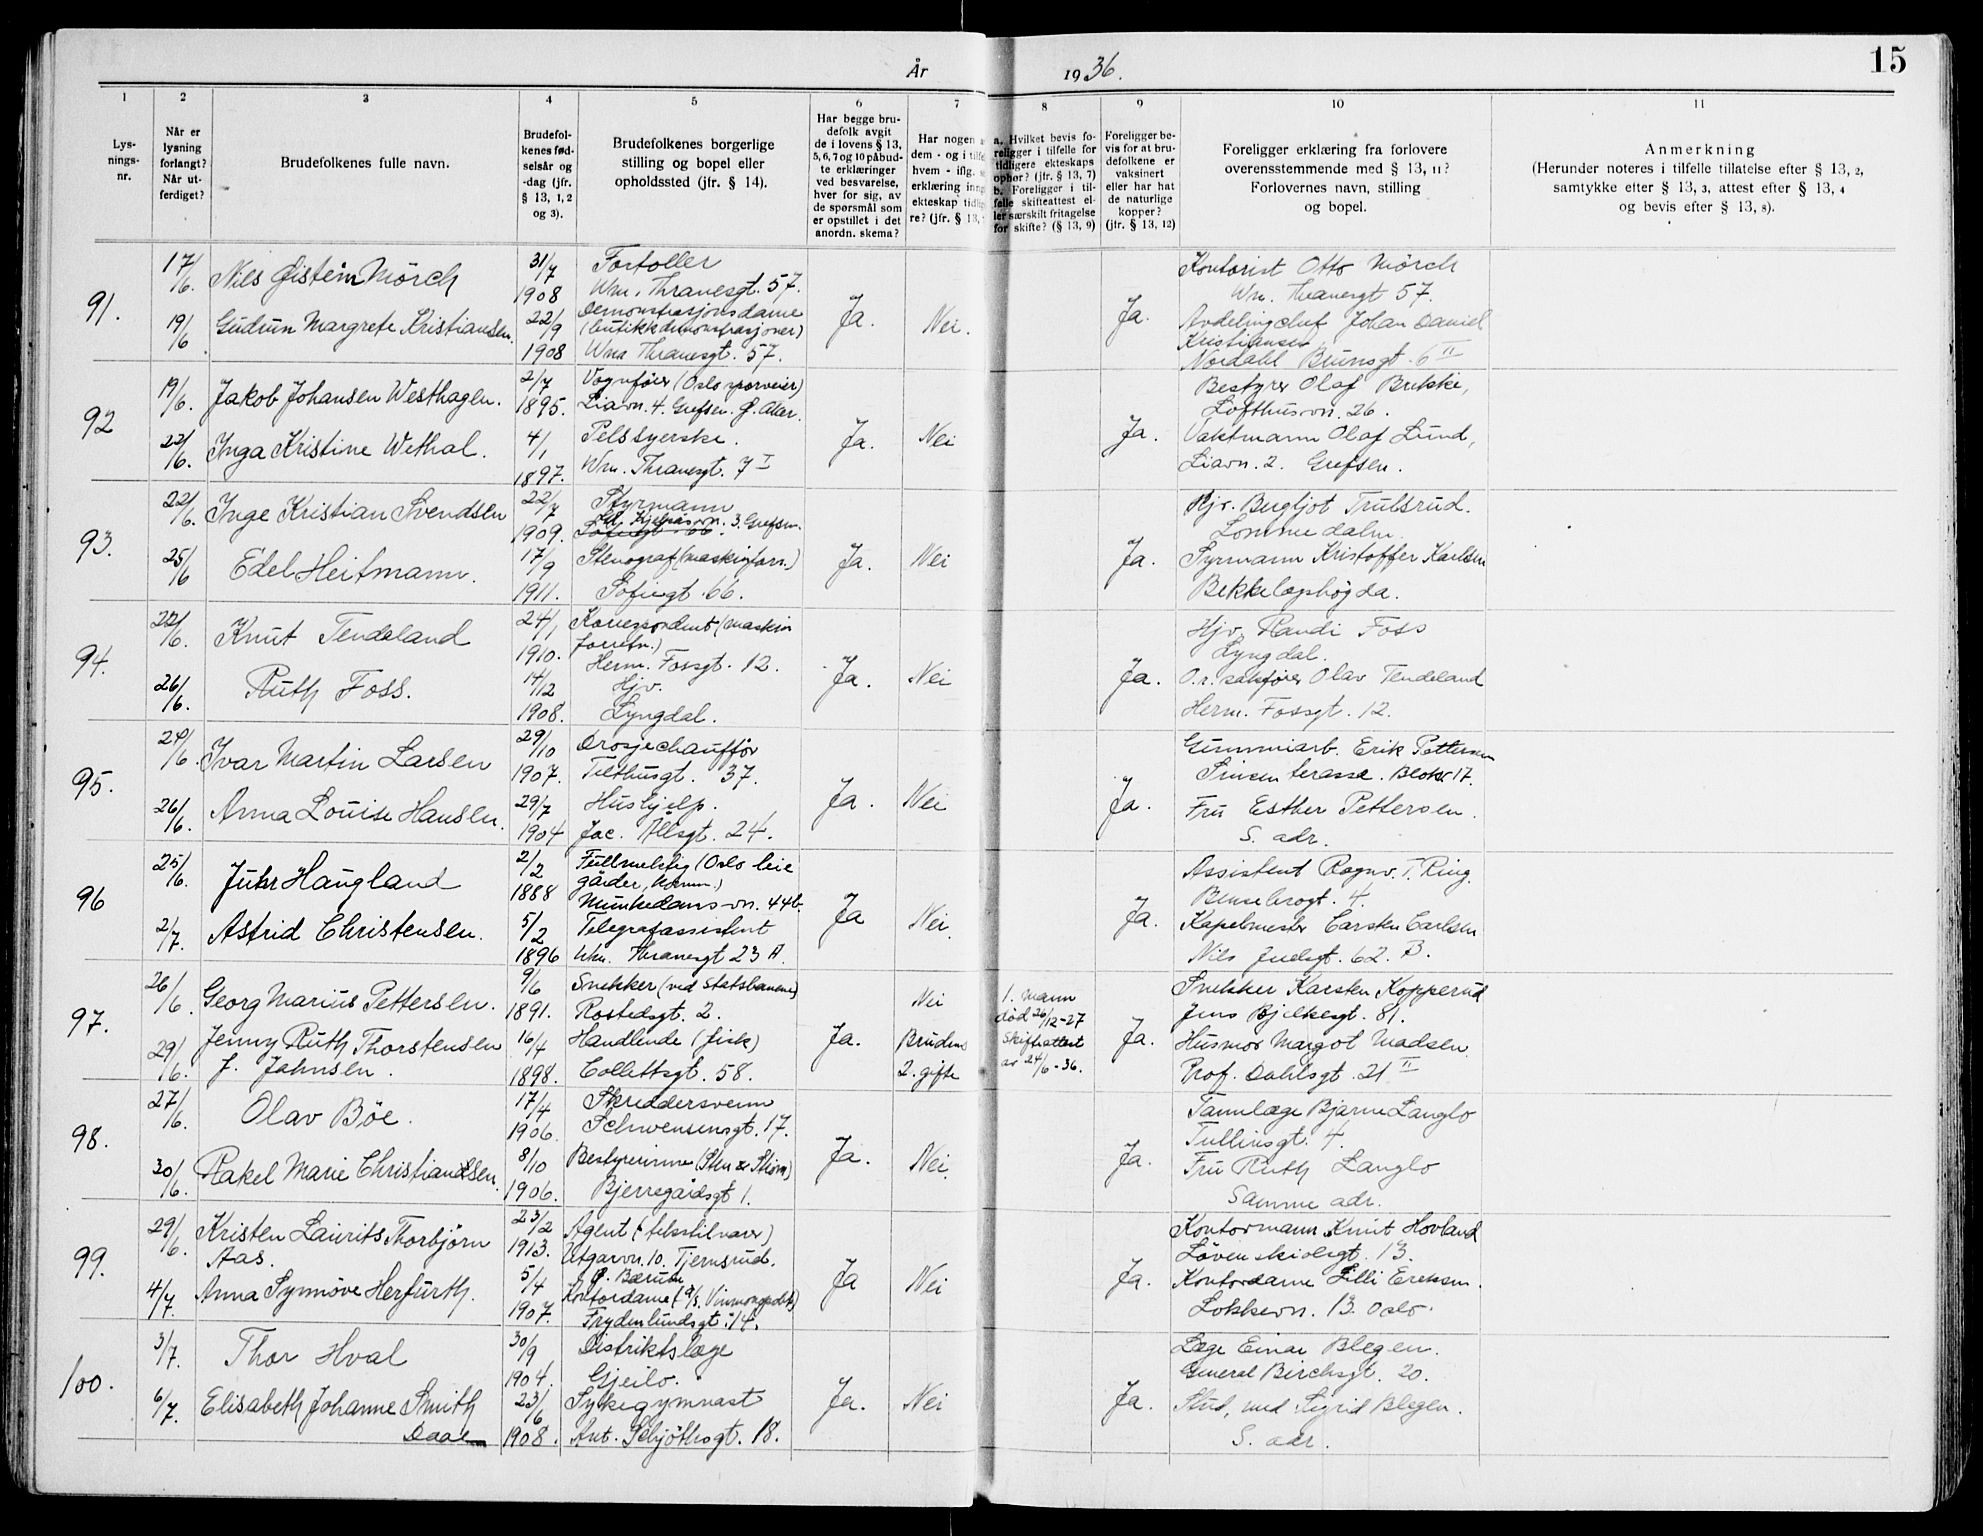 År 1936.
15
1
2
3
4
5
6
7
8
9
10
11
Lys-
nings-
nr.
Når er
lysning
forlangt?
Når ut-
ferdiget?
Brudefolkenes fulle navn.
Brudefol-
kenes fød-
selsår og
-dag (jfr.
§ 13, 1, 2
og 3).
Brudefolkenes borgerlige
stilling og bopel eller
opholdssted (jfr. § 14).
Har begge bru-
defolk avgit
de i lovens § 13,
5, 6, 7 og 10 påbud-
te erklæringer
ved besvarelse,
hver for sig, av
de spørsmål som
er opstillet i det
anordn. skema?
Har nogen a
dem - og i tilfe
hvem - iflg. s
erklæring inng
ekteskap tidlig
re? (jfr. § 13,
a. Hvilket bevis fo-
religger i tilfelle for
tidligere ekteskaps
ophør? (jfr. § 13, 7)
b. Foreligger i til-
felle skifteattest el-
ler særskilt fritagelse
for skifte? (§ 13, 9)
Foreligger be-
vis for at bru-
defolkene er
vaksinert
eller har hat
de naturlige
kopper?
(jfr. § 13, 12)
Foreligger erklæring fra forlovere
overensstemmende med § 13, 11?
Forlovernes navn, stilling
og bopel.
Anmerkning
(Herunder noteres i tilfelle tillatelse efter § 13, 2,
samtykke efter § 13, 3, attest efter § 13, 4
og bevis efter § 13, 8).
91.
17/6.
19/6
Nils Øistein Mörch
Gudrun Margrete Kristiansen.
31/7
1908
22/9
1908
Fortoller
Wm. Thranesgt. 57.
Demonstrasjonsdame
(butikkdemonstrasjoner)
Wm Thranesgt. 57.
Ja.
Nei.
Ja.
Kontorist Otto Mörch
Wm. Thranesgt 57.
Avdelingchef Johan Daniel
Kristiansen
Nordahl Brunsgt. 6 II
92
19/6.
22/6.
Jakob Johansen Westhagen.
Inga Kristine Wethal.
2/7
1895.
4/1
1897.
Vognfører (Oslo sporveier)
Liavn. 4. Grefsen. Ø. Aker.
Pelssyerske.
Wm. Thranesgt. 7 I
Ja.
Nei
Ja.
Bestyrer Olaf Brekke,
Lofthusvn. 26.
Vaktmann Olaf Lund,
Liavn. 2. Grefsen.
93.
22/6.
25/6
Inge Kristian Svendsen
Edel Heitmann.
22/7
1909.
17/9
1911.
Styrmann
Kjelsåsvn. 3. Grefsen.
Sofiesgt 66.
Stenograf (maskinforr.)
Sofiesgt. 66.
Ja.
Nei
Ja.
Hjv. Bergljot Trulsrud.
Lommedalen.
Syrmann Kristoffer Karlsen
Bekkelagshøgda.
94.
22/6.
26/6.
Knut Tendeland
Ruth Foss.
24/1
1910.
14/12
1908.
Korrespondent (maskin
forretn.)
Herm. Fossgt. 12.
Hjv.
Lyngdal.
Ja.
Nei
Ja.
Hjv. Randi Foss
Lyngdal.
O.r.sakfører Olav Tendeland
Herm. Fossgt. 12.
95.
24/6.
26/6.
Ivar Martin Larsen
Anna Louise Hansen.
29/10
1907.
29/7
1904
Drosjechauffør
Tilthusgt. 37.
Hushjelp.
Jac. Allsgt. 24.
Ja.
Nei
Ja.
Gummiarb. Erik Pettersen
Sinsen terasse. Blokk 17.
Fru Esther Pettersen.
S. adr.
96
25/6.
2/7.
Juhr Haugland
Astrid Christensen.
2/2
1888
5/2
1896
Fullmektig (Oslo leie
gårder, komm.)
Munkedamsvn. 44b.
Telegrafassistent
Wm. Thranesgt 23 A.
Ja
Nei.
Ja.
Assistent Ragnv. T. Ring.
Bensebrogt. 4.
Kapelmester Carsten Carlsen
Nils Juelsgt. 62. B.
97.
26/6.
29/6.
Georg Marius Pettersen.
Jenny Ruth Thorstensen
f. Jahnsen.
9/6
1891.
16/4
1898.
Snekker (ved Statsbanene)
Rostedsgt. 2.
Handlende (fisk)
Collettsgt. 58.
Ja.
Nei
Brudens
2. gifte
1. mann
død 26/12-27
Skifteattest
av 24/6-36.
Ja.
Snekker Karsten Kopperud
Jens Bjelkesgt. 81.
Husmor Margot Madsen.
Prof. Dahlsgt. 21 II
98.
27/6.
30/6.
Olav Böe.
Rakel Marie Christiansen.
17/4
1906.
8/10
1906.
Skreddersvenn
Schwensensgt. 17.
Bestyrerinne (Sten & Ström)
Bjerregårdsgt 1.
Ja.
Nei.
Ja.
Tannlæge Bjarne Langlo
Tullinsgt. 4.
Fru Ruth Langlo
Samme adr.
99.
29/6
4/7.
Kristen Laurits Thorbjörn
Aas.
Anna Synnöve Herfurth.
23/2
1913.
5/4
1907.
Agent (tekstilvarer)
Utgarvn. 10. Tjernsrud.
p. Bærum
Kontordame (a/s. Vinmonopolet)
Frydenlundsgt. 14.
Ja
Nei
Ja.
Kontormann Knut Hovland
Løvenskioldsgt. 13.
Kontordame Lilli Eriksen.
Løkkevn. 13. Oslo.
100.
3/7.
6/7.
Thor Hval
Elisabeth Johanne Smith
Daae
30/9
1904.
23/6
1908.
Distriktslæge
Gjeilo.
Sykegymnast
Ant. Schjöthsgt. 18.
Ja.
Nei
Ja.
Læge Einar Blegen.
General Birchsgt. 20.
Stud. med Sigrid Blegen.
S. adr.